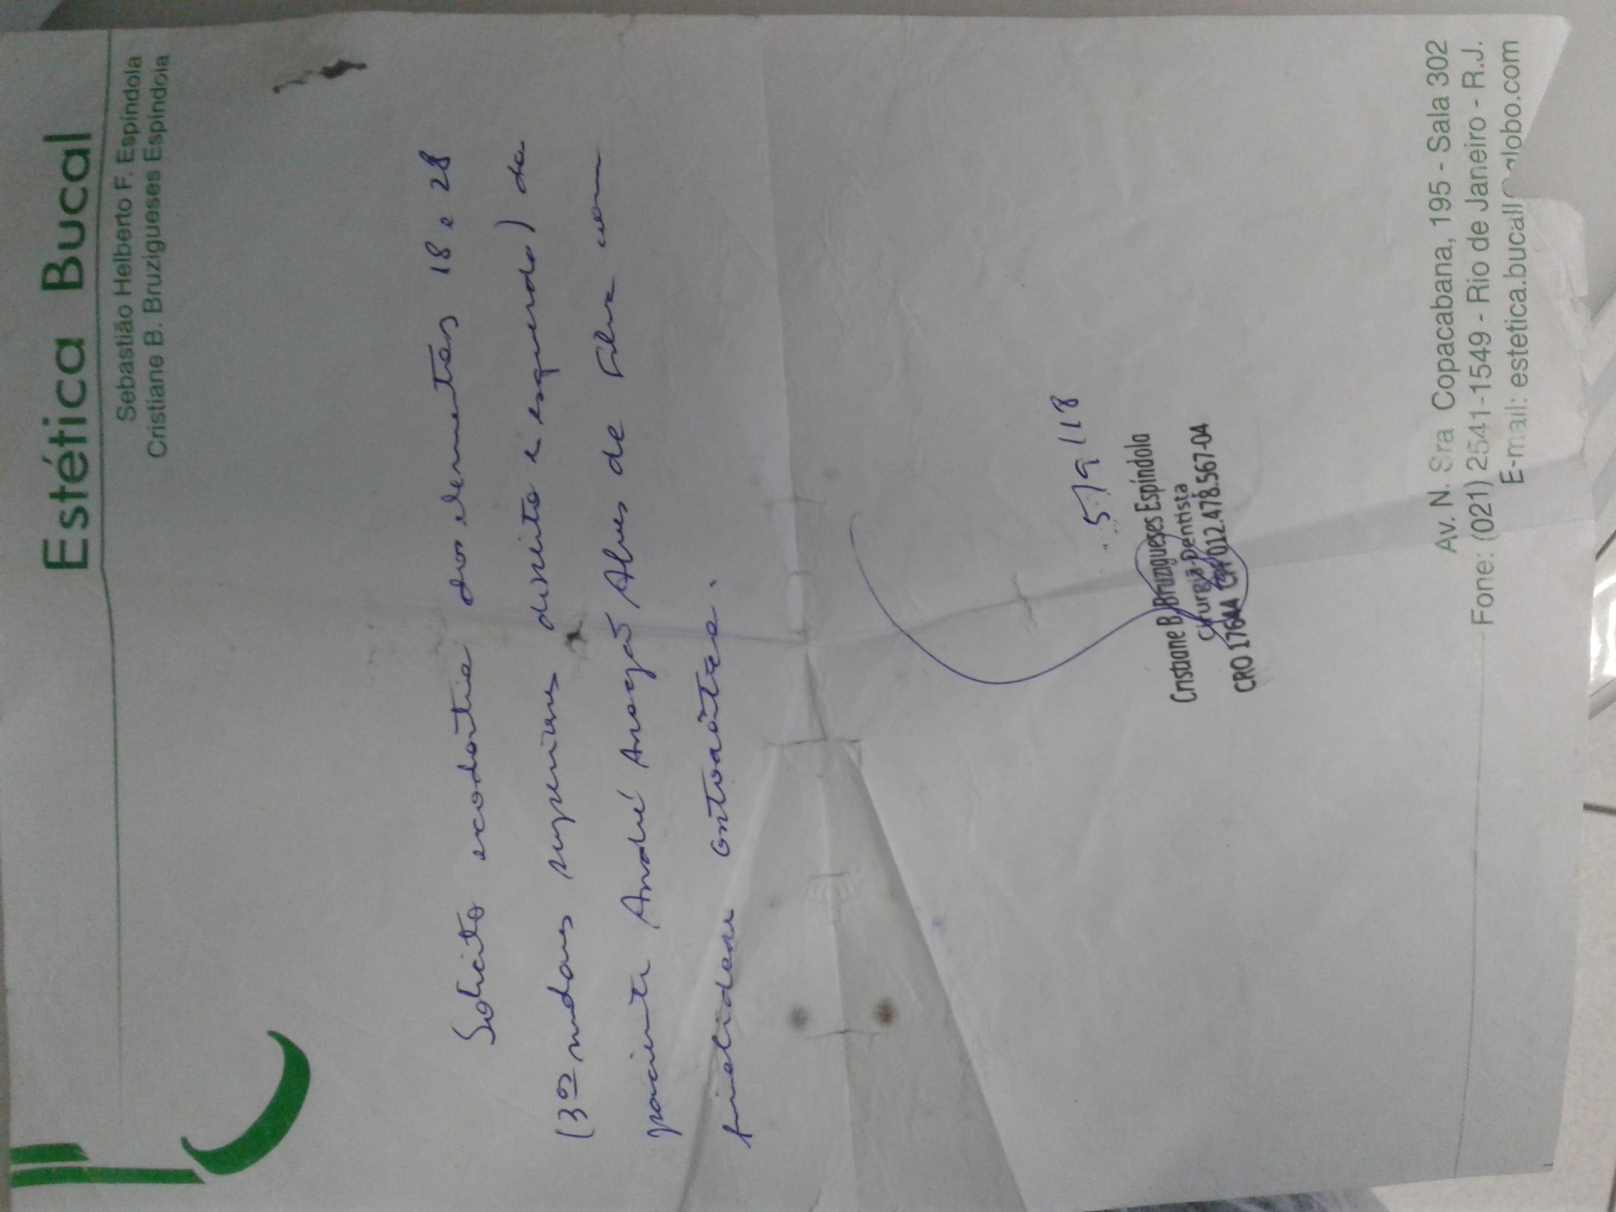 Estética Bucal
Sebastião Helberto F. Espíndola
Cristiane B. Bruzigueses Espíndola
Solicito exodontia dos elementos 18 e 28
(3os molares superiores direito e esquerdo) da
paciente André Aragão Alves de
finalidade ortodôntica.
5/9/18
Cristiane B. Bruzigueses Espíndola
Cirurgiã-Dentista
CRO 17644 CPF 012.478.567-04
Av. N. Sra Copacabana, 195 - Sala 302
Fone: (021) 2541-1549 - Rio de Janeiro - R.J.
E-mail: estetica.bucal globo.com